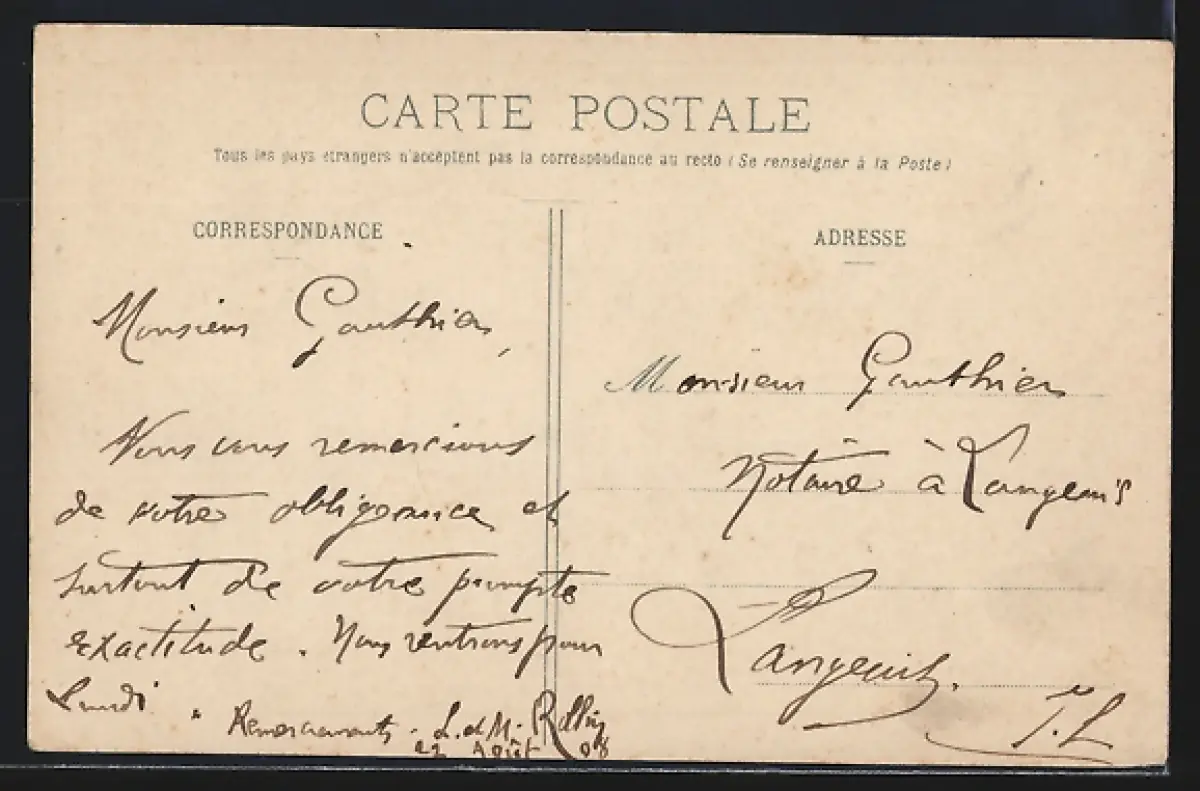 CARTE POSTALE
Tous les pays étrangers n'acceptent pas la correspondance au recto (Se renseigner à la Poste)
CORRESPONDANCE
Monsieur Gauthier,
Nous vous remercions
de votre obligeance et
surtout de votre prompte
exactitude. Nous rentrons pour
Lundi
Remerciements. L. et M.
22 Août 08
ADRESSE
Monsieur Gauthier
Notaire à Langeais
Langeais.
I. L.